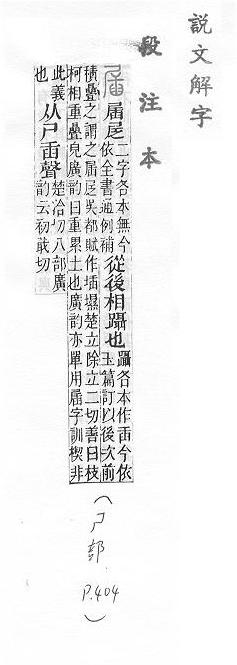 説文解字
段注本
㞚二字各本無今
依全書通例補
從後相躡也
躡各本作臿今依
玉篇訂以後次前
積疊之謂之㞚吳都賦作楚立除立二切善曰枝
柯相重疊皃廣韵曰重累土也廣韵亦單用㞚字訓楔非
此義
也
从尸臿聲
楚洽切八部廣
韵云初戢切
(尸部 P.404)